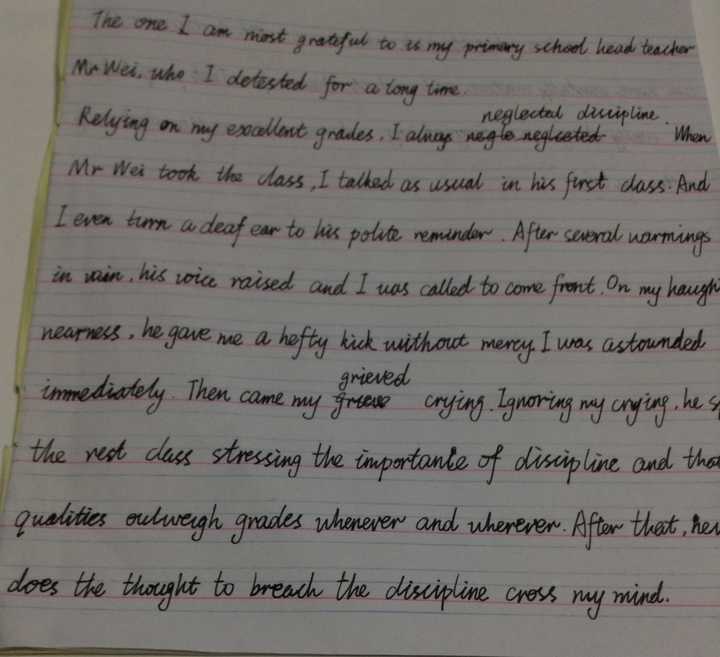 The one I am most grateful to is my primary school head teacher
Mr Wei, who I detested for a long time.
neglected discipline.
Relying on my excellent grades, I always negle neglected When
Mr Wei took the class, I talked as usual in his first class. And
I even turn a deaf ear to his polite reminder. After several warnings
in vain, his voice raised and I was called to come front. On my haugh
nearness, he gave me a hefty kick without mercy. I was astounded
grieved
immediately. Then came my grieve crying. Ignoring my crying, he s
the rest class stressing the importance of discipline and that
qualities outweigh grades whenever and wherever. After that,
does the thought to breach the discipline cross my mind.